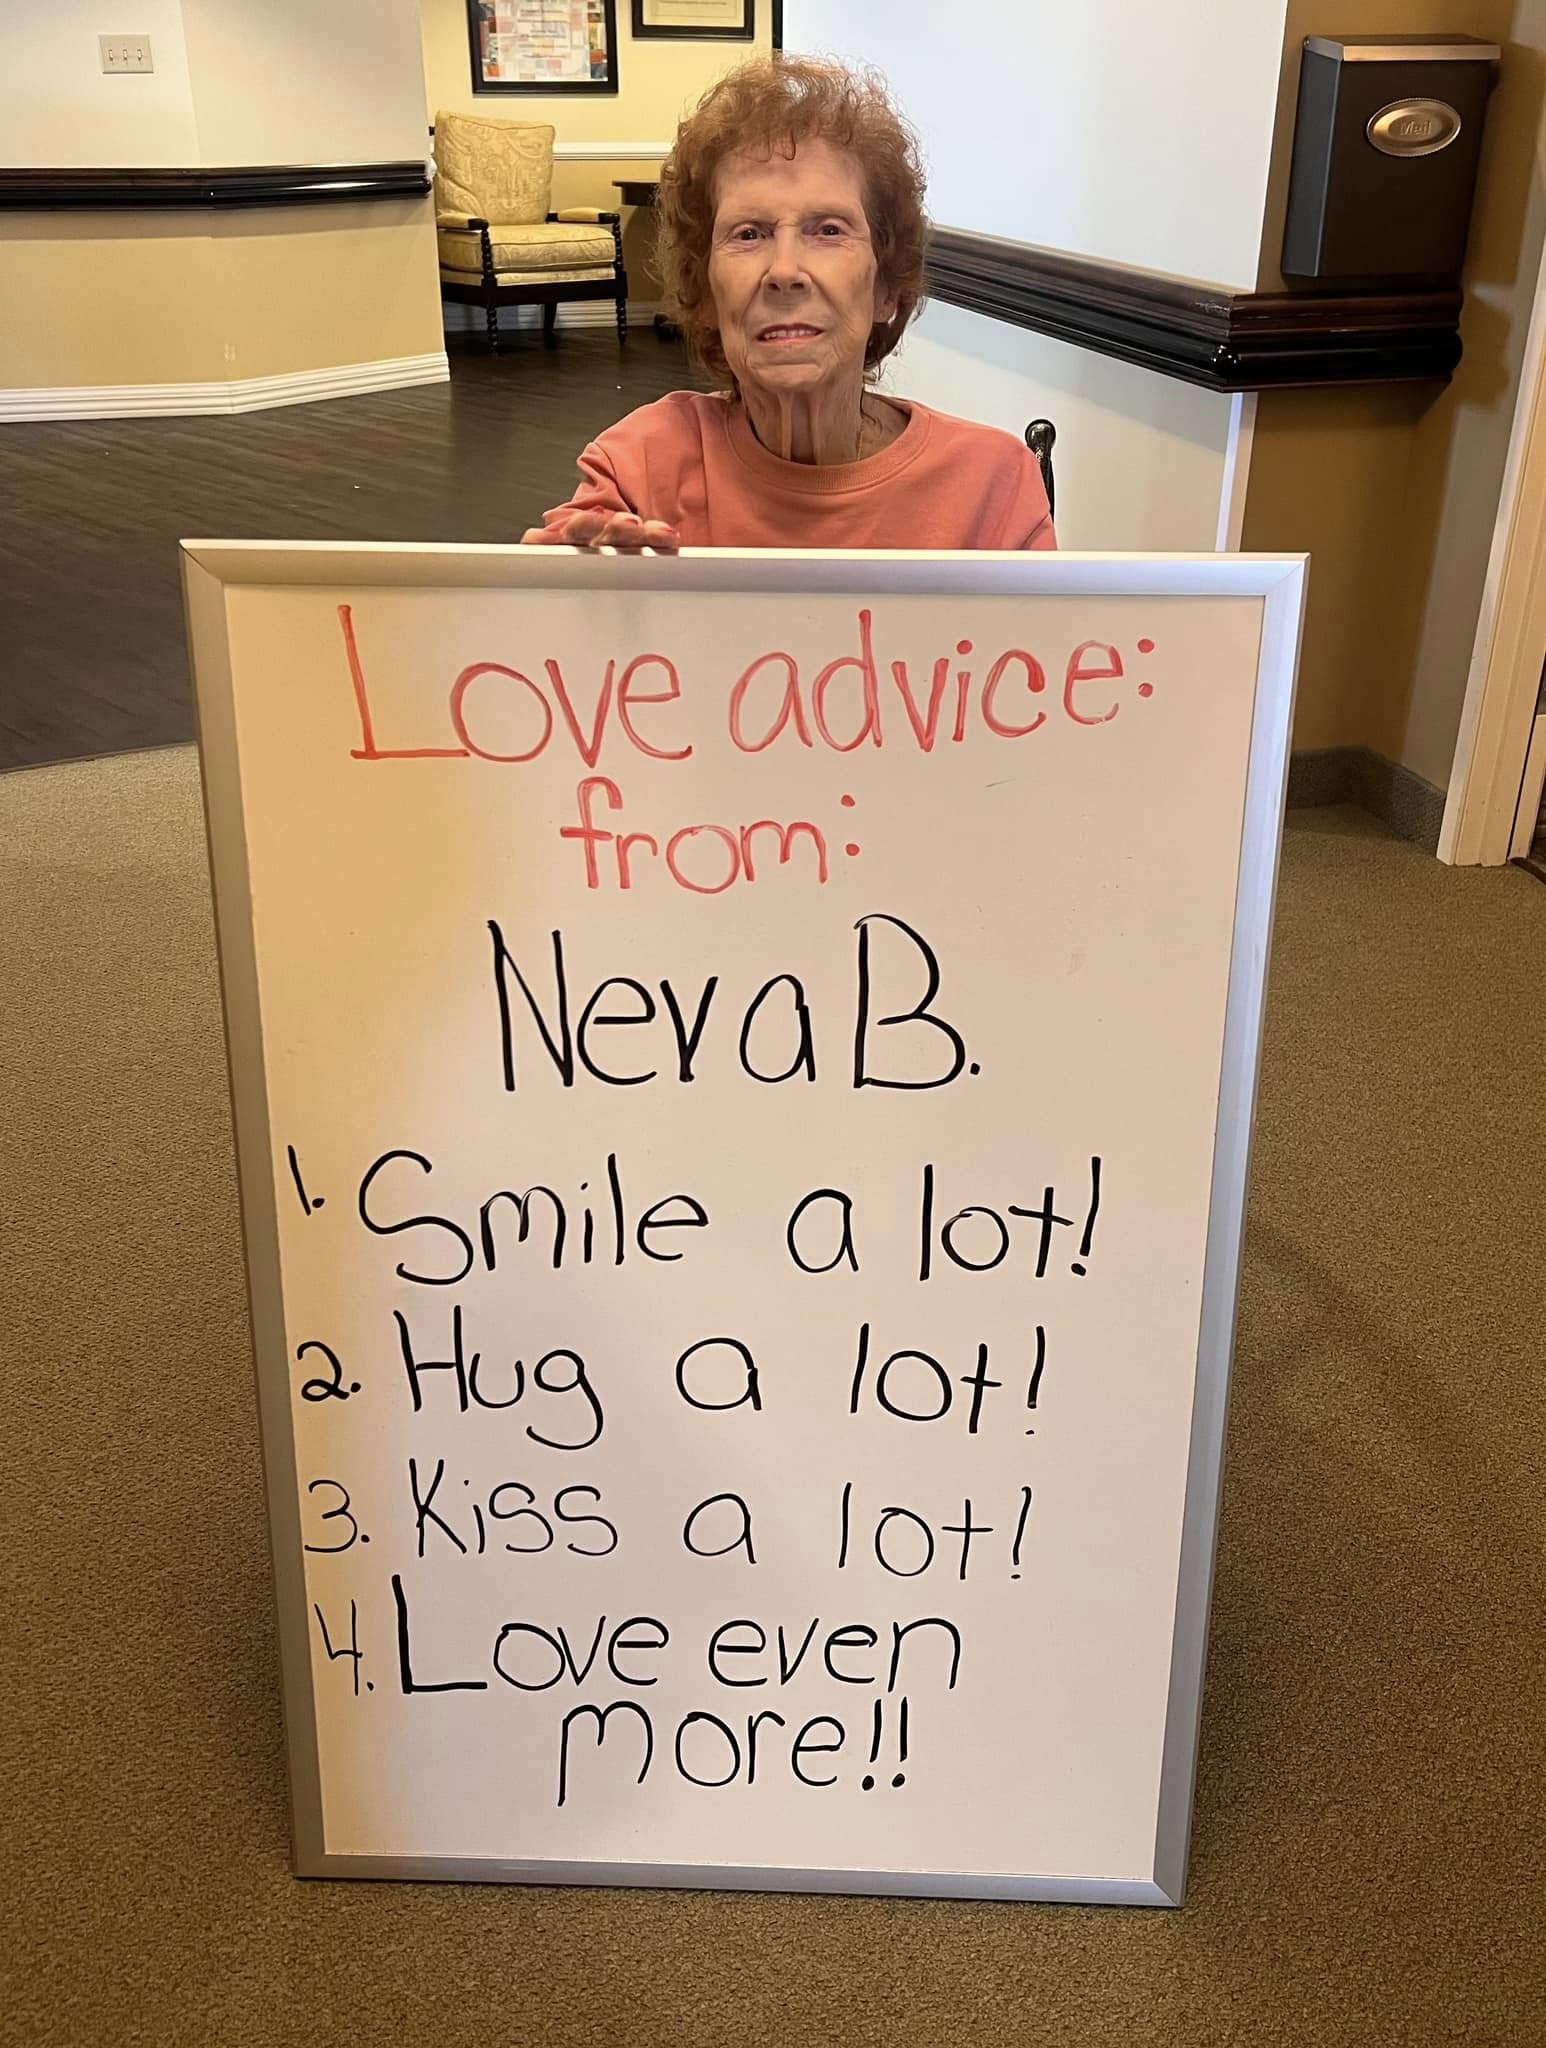 Mail
Love advice:
from:
Neva B.
1. Smile a lot!
2. Hug a lot!
3. Kiss a lot!
4. Love even
more!!